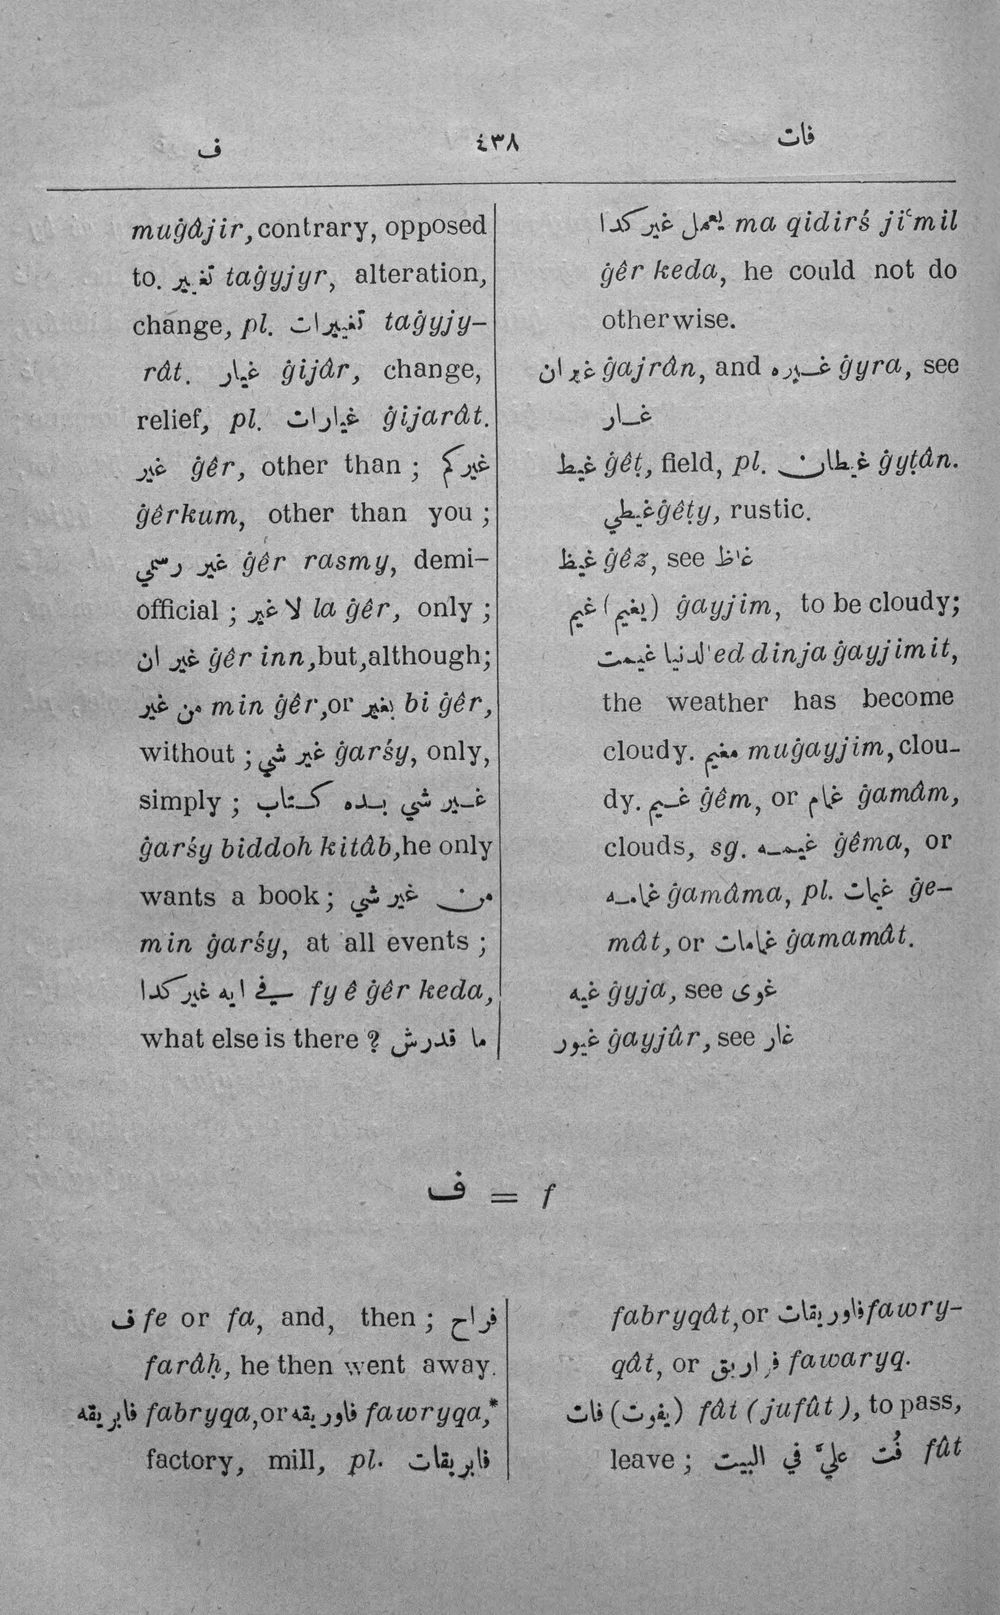 ف ٤٣٨ فات
muġâjir, contrary, opposed
to. تغيير taġyjyr, alteration,
change, pl. تغييرات taġyjy-
rât. غيار ġijâr, change,
relief, pl. غيارات ġijarât.
غير ġêr, other than ; غيركم
ġêrkum, other than you ;
غير رسمي ġêr rasmy, demi-
official ; لا غير la ġêr, only ;
غير ان ġêr inn, but, although;
من غير min ġêr, or بغير bi ġêr,
without ; غير شي ġarśy, only,
simply ; غير شي بده كتاب
ġarśy biddoh kitâb, he only
wants a book ; من غير شي
min ġarśy, at all events ;
في ايه غير كدا fy ê ġêr keda,
what else is there ? ما قدرش
يعمل غير كدا ma qidirś jiʿmil
ġêr keda, he could not do
otherwise.
غيران ġajrân, and غيره ġyra, see
غار
غيط ġêṭ, field, pl. غيطان ġyṭân.
غيطي ġêṭy, rustic.
غيظ ġêz, see غاظ
غيم (يغيم) ġayjim, to be cloudy;
الدنيا غيمت ed dinja ġayjimit,
the weather has become
cloudy. مغيم muġayjim, clou-
dy. غيم ġêm, or غمام ġamâm,
clouds, sg. غيمه ġêma, or
غمامه ġamâma, pl. غيمات ġe-
mât, or غمامات ġamamât.
غيه ġyja, see غوى
غيور ġayjûr, see غار
ف = f
ف fe or fa, and, then ; فراح
farâḥ, he then went away.
فابريقه fabryqa, or فاوريقه fawryqa,*
factory, mill, pl. فابريقات
fabryqât, or فاوريقات fawry-
qât, or فواريق fawaryq.
فات (يفوت) fât (jufût), to pass,
leave ; فُت عليَّ في البيت fût